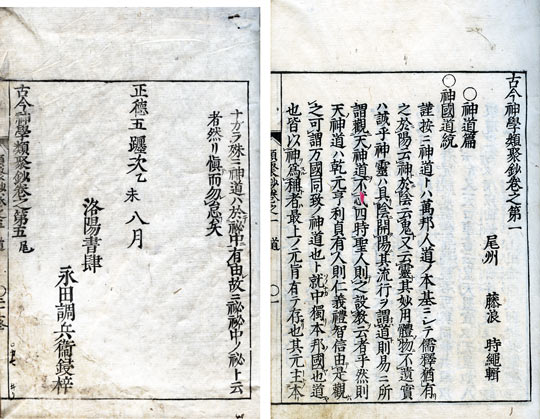 古今神學類聚鈔卷之第一
尾州 藤浪 時繩輯
○神道篇
○神國道統
謹按ニ神道トハ萬邦人道ノ本基ニシテ儒釋猶有
之於陽云神於陰云鬼又云靈其妙用體物不遺實
ハ誠乎神靈ハ具陰開陽其流行ヲ謂道則易ニ所
謂觀天神道不 四時聖人則之設教云者乎然則
天神道ハ乾元亨利貞有人則仁義禮智信由是觀
之可謂万國同致ノ神道也ト就中獨本邦國也道
也皆以神爲稱者最上ノ元 有テ存也其元主本
類聚鈔卷之一 道
十方ヲ殊ニ神道ハ於祕中有由故ニ祕祕中ノ祕ト云
者然リ愼而勿忽矣
正德五躔次乙未八月
洛陽書肆
永田調兵衞鋟梓
古今神學類聚鈔卷之第五尾